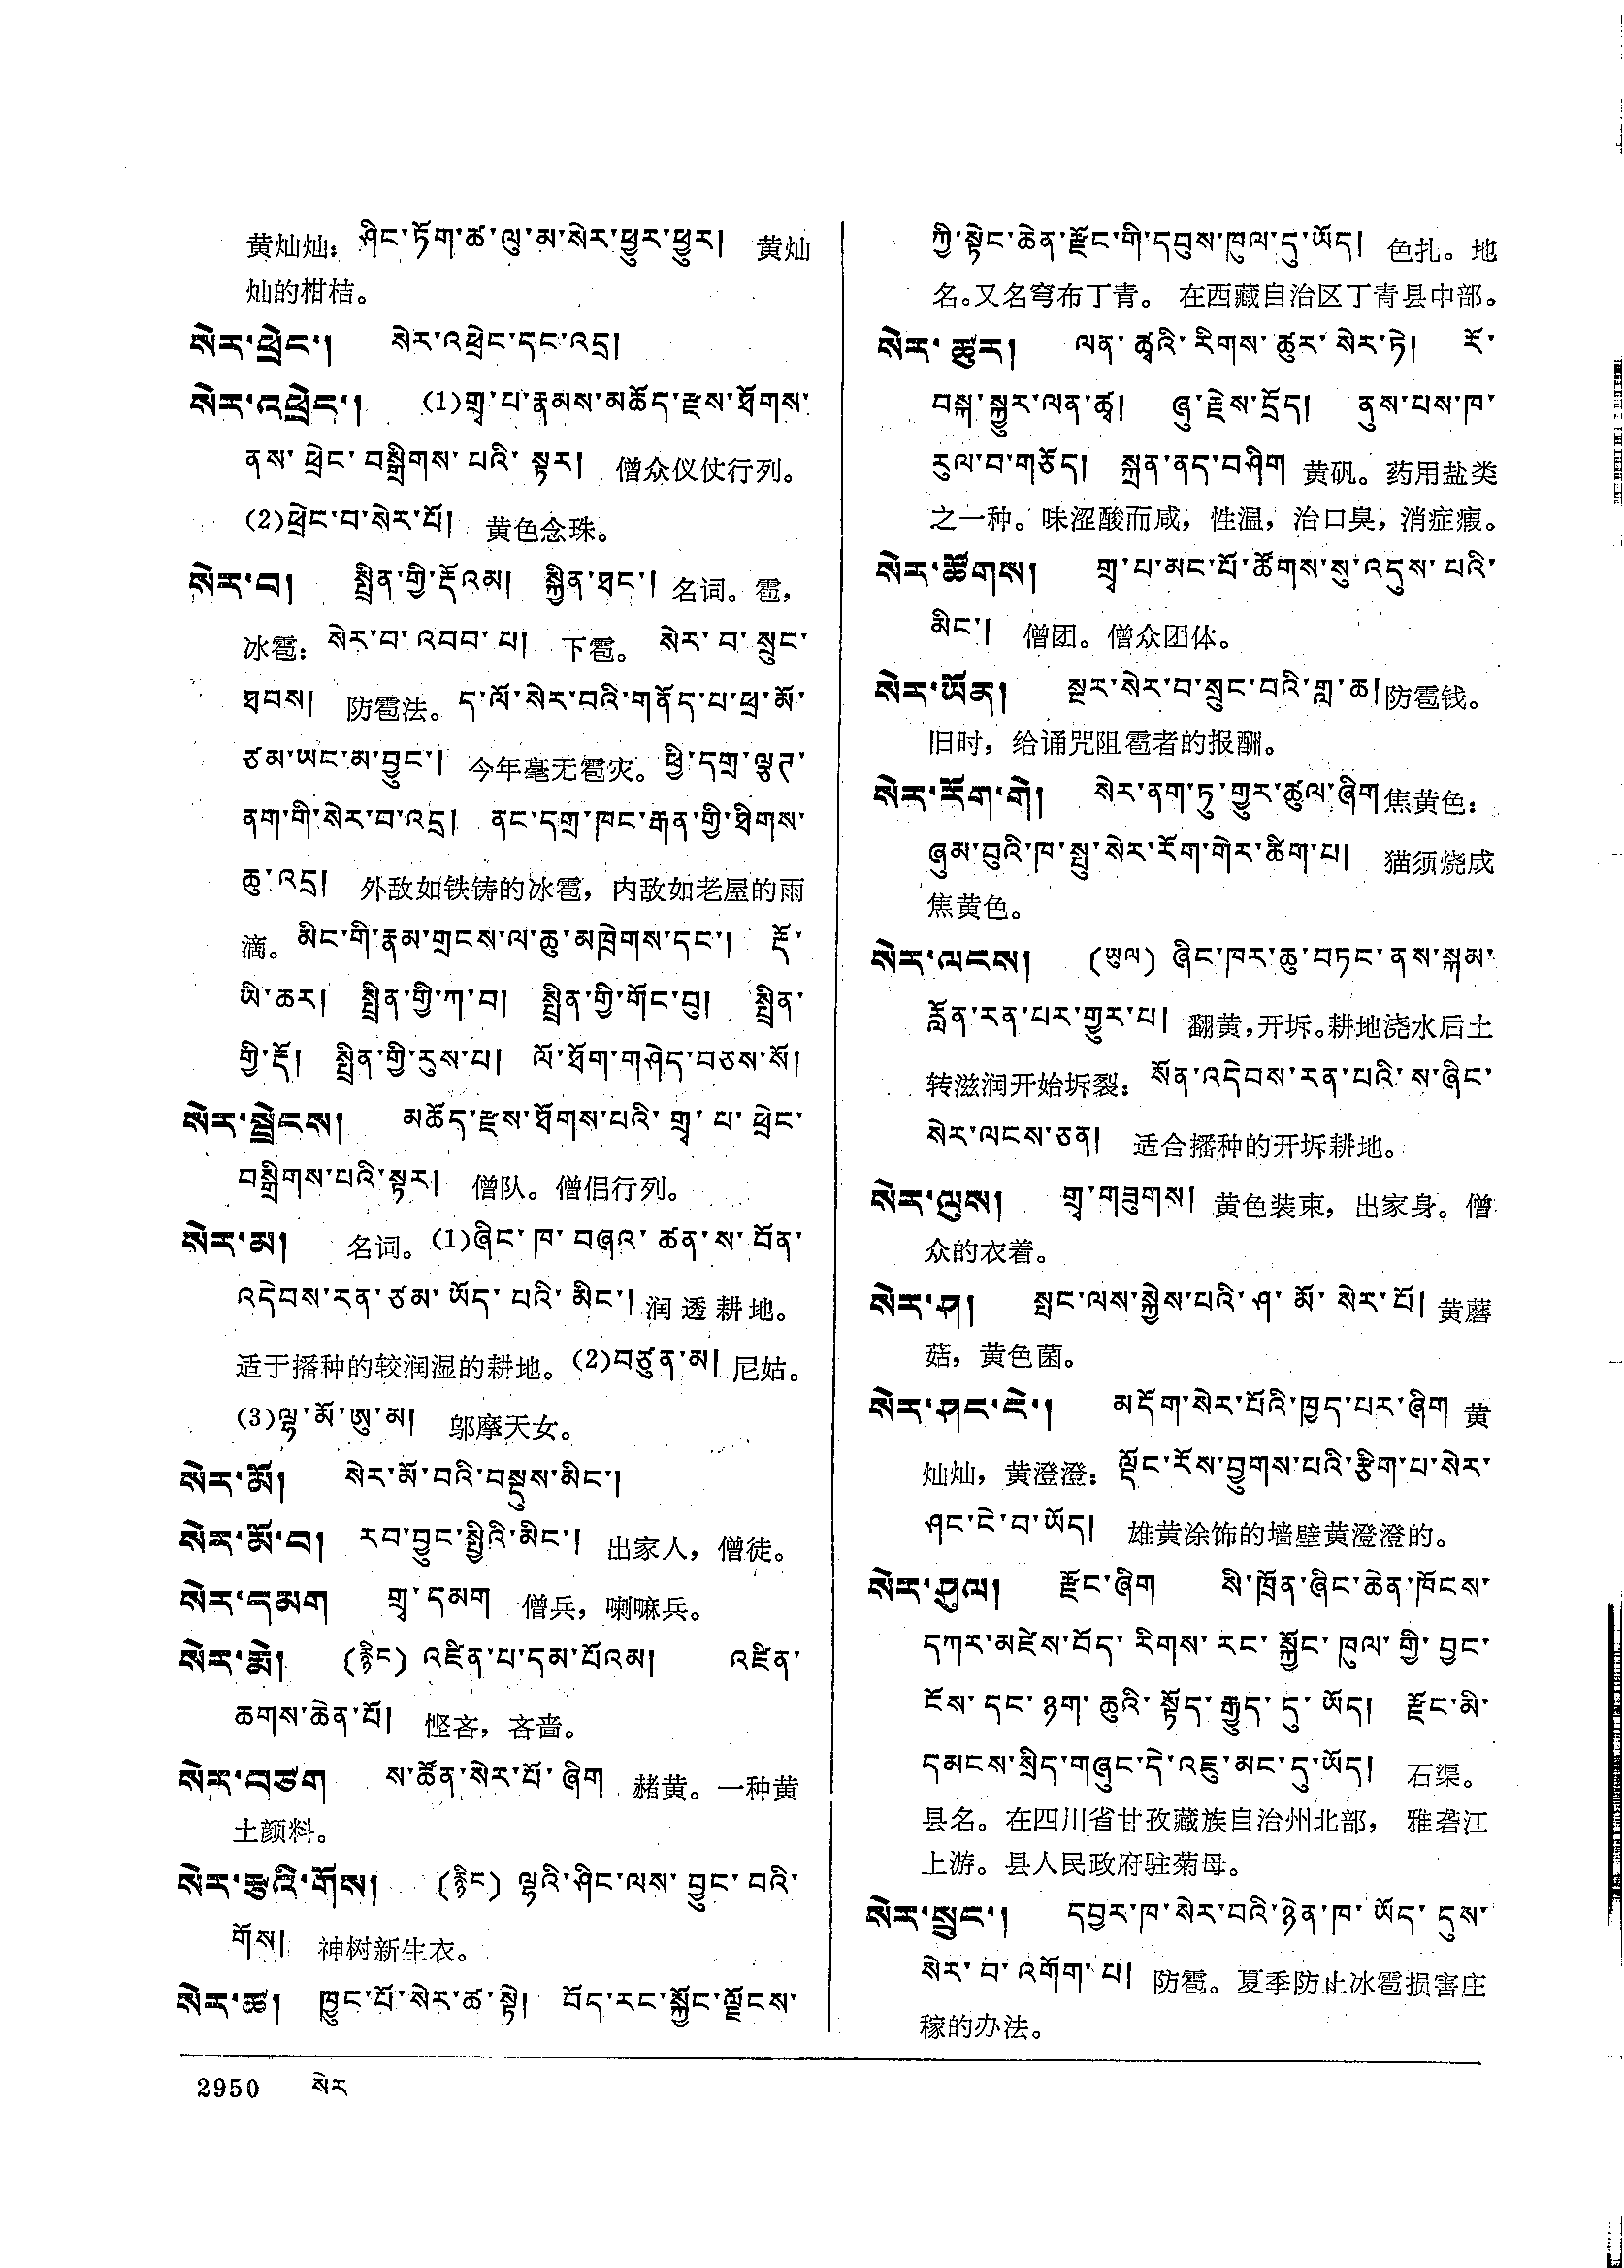 黄灿灿：ཤིང་ཏོག་ཚ་ལུ་མ་སེར་ཕྱུར་ཕྱུར། 黄灿
灿的柑桔。
སེར་ཕྲེང་། སེར་འཕྲེང་དང་འདྲ།
སེར་འཕྲེང་། (1)གྲྭ་པ་རྣམས་མཆོད་རྫས་ཐོགས་
ནས་ཕྲེང་བསྒྲིགས་པའི་སྟར། 僧众仪仗行列。
(2)ཕྲེང་བ་སེར་པོ། 黄色念珠。
སེར་བ། སྤྲིན་གྱི་རྡོའམ། སྐྱིན་ཐང་། 名词。雹，
冰雹：སེར་བ་འབབ་པ། 下雹。 སེར་བ་སྲུང་
ཐབས། 防雹法。ད་ལོ་སེར་བའི་གནོད་པ་ཕྲ་མོ་
ཙམ་ཡང་མ་བྱུང་། 今年毫无雹灾。ཕྱི་དགྲ་ལྕགས་
ནག་གི་སེར་བ་འདྲ། ནང་དགྲ་ཁང་རྒན་གྱི་ཐིགས་
ཆུ་འདྲ། 外敌如铁铸的冰雹，内敌如老屋的雨
滴。མིང་གི་རྣམ་གྲངས་ལ་ཆུ་མཁྲེགས་དང་། རྡོ་
ཡི་ཆར། སྤྲིན་གྱི་ཀ་བ། སྤྲིན་གྱི་གོང་བུ། སྤྲིན་
གྱི་རྡོ། སྤྲིན་གྱི་རུས་པ། ལོ་ཐོག་གཤེད་བཅས་སོ།
སེར་སྦྲེངས། མཆོད་རྫས་ཐོགས་པའི་གྲྭ་པ་ཕྲེང་
བསྒྲིགས་པའི་སྟར། 僧队。僧侣行列。
སེར་མ། 名词。(1)ཞིང་ཁ་བཞའ་ཚན་ས་བོན་
འདེབས་རན་ཙམ་ཡོད་པའི་མིང་། 润透耕地。
适于播种的较润湿的耕地。(2)བཙུན་མ། 尼姑。
(3)ལྷ་མོ་ཨུ་མ། 邬摩天女。
སེར་མོ། སེར་མོ་བའི་བསྡུས་མིང་།
སེར་མོ་བ། རབ་བྱུང་སྤྱིའི་མིང་། 出家人，僧徒。
སེར་དམག གྲྭ་དམག 僧兵，喇嘛兵。
སེར་རྨེ། (རྙིང) འཛིན་པ་དམ་པོའམ། འཛིན་
ཆགས་ཆེན་པོ། 悭吝，吝啬。
སེར་བཙག ས་ཚོན་སེར་པོ་ཞིག 赭黄。一种黄
土颜料。
སེར་རྩྭའི་གོས། (རྙིང) ལྷའི་ཤིང་ལས་བྱུང་བའི་
གོས། 神树新生衣。
སེར་ཚ། ཁྱུང་པོ་སེར་ཚ་སྟེ། བོད་རང་སྐྱོང་ལྗོངས་
ཀྱི་སྟེང་ཆེན་རྫོང་གི་དབུས་ཁུལ་དུ་ཡོད། 色扎。地
名。又名穹布丁青。 在西藏自治区丁青县中部。
སེར་ཚུར། ལན་ཚྭའི་རིགས་ཚུར་སེར་ཏེ། རོ་
བསྐ་སྐྱུར་ལན་ཚྭ། ཞུ་རྗེས་དྲོད། ནུས་པས་ཁ་
རུལ་བ་གཅོད། སྐྲན་ནད་བཤིག 黄矾。药用盐类
之一种。味涩酸而咸，性温，治口臭，消症瘕。
སེར་ཚོགས། གྲྭ་པ་མང་པོ་ཚོགས་སུ་འདུས་པའི་
མིང་། 僧团。僧众团体。
སེར་ཡོན། སྔར་སེར་བ་སྲུང་བའི་གླ་ཆ། 防雹钱。
旧时，给诵咒阻雹者的报酬。
སེར་རོག་གེ། སེར་ནག་ཏུ་གྱུར་ཚུལ་ཞིག 焦黄色：
ཞུམ་བུའི་ཁ་སྤུ་སེར་རོག་གེར་ཚིག་པ། 猫须烧成
焦黄色。
སེར་ལངས། (ཡུལ) ཞིང་ཁར་ཆུ་བཏང་ནས་སྐམ་
རློན་རན་པར་གྱུར་པ། 翻黄，开坼。耕地浇水后土
转滋润开始坼裂：སོན་འདེབས་རན་པའི་ས་ཞིང་
སེར་ལངས་ཅན། 适合播种的开坼耕地。
སེར་ལུས། གྲྭ་གཟུགས། 黄色装束，出家身。僧
众的衣着。
སེར་ཤ། སྤང་ལས་སྐྱེས་པའི་ཤ་མོ་སེར་པོ། 黄蘑
菇，黄色菌。
སེར་ཤང་ངེ་། མདོག་སེར་པོའི་ཁྱད་པར་ཞིག 黄
灿灿，黄澄澄：ལྡོང་རོས་བྱུགས་པའི་རྩིག་པ་སེར་
ཤང་ངེ་བ་ཡོད། 雄黄涂饰的墙壁黄澄澄的。
སེར་ཤུལ། རྫོང་ཞིག སི་ཁྲོན་ཞིང་ཆེན་ཁོངས་
དཀར་མཛེས་བོད་རིགས་རང་སྐྱོང་ཁུལ་གྱི་བྱང་
ངོས་དང་ཉག་ཆུའི་སྟོད་རྒྱུད་དུ་ཡོད། རྫོང་མི་
དམངས་སྲིད་གཞུང་དེ་འཇུ་མང་དུ་ཡོད། 石渠。
县名。在四川省甘孜藏族自治州北部， 雅砻江
上游。县人民政府驻菊母。
སེར་སྲུང་། དབྱར་ཁ་སེར་བའི་ཉེན་ཁ་ཡོད་དུས་
སེར་བ་འགོག་པ། 防雹。夏季防止冰雹损害庄
稼的办法。
2950 སེར